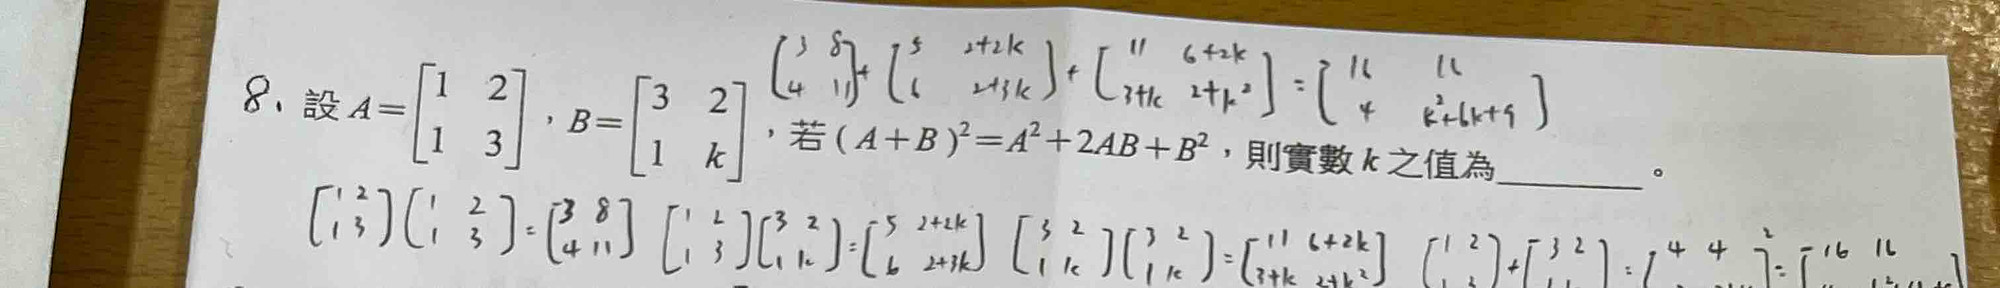 [3 8; 4 11] + [5 2+2k; 6 2+3k] + [11 6+2k; 3+k 2+k²] = [16 16; 4 k²+6k+9]
8、設 A=[1 2; 1 3],B=[3 2; 1 k],若(A+B)²=A²+2AB+B²,則實數 k 之值為______。
[1 2; 1 3][1 2; 1 3]=[3 8; 4 11] [1 2; 1 3][3 2; 1 k]=[5 2+2k; 6 2+3k] [3 2; 1 k][3 2; 1 k]=[11 6+2k; 3+k 2+k²] [1 2; 1 3]+[3 2;]=[4 4]²=[16 16]